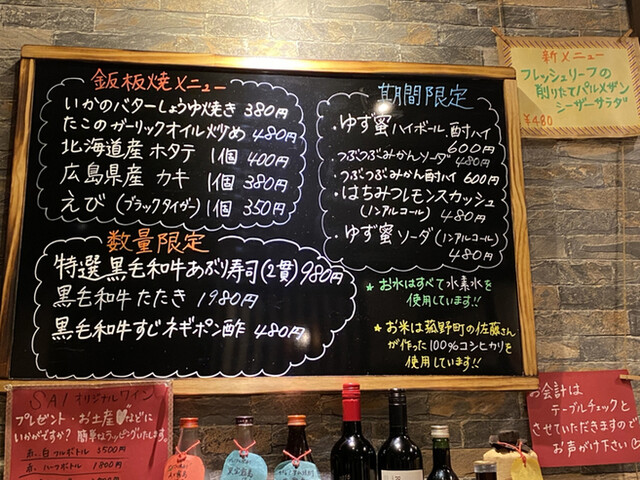 鈑板焼メニュー
いかのバターしょうゆ焼き 380円
たこのガーリックオイル炒め 480円
北海道産 ホタテ 1個 400円
広島県産 カキ 1個 380円
えび(ブラックタイガー) 1個 350円
数量限定
特選黒毛和牛あぶり寿司(2貫)980円
黒毛和牛たたき 1980円
黒毛和牛すじネギポン酢 480円
期間限定
・ゆず蜜ハイボール、酎ハイ
600円
・つぶつぶみかんソーダ 480円
・つぶつぶみかん酎ハイ 600円
・はちみつレモンスカッシュ
(ノンアルコール) 480円
・ゆず蜜ソーダ(ノンアルコール)
480円
★お水はすべて水素水を
使用しています!!
★お米は菰野町の佐藤さん
が作った100%コシヒカリを
使用しています!!
新メニュー
フレッシュリーフの
削りたてパルメザン
シーザーサラダ
¥480
SAIオリジナルワイン
プレゼント・お土産♥などに
いかがですか?簡単なラッピングいたします。
赤、白 フルボトル 2500円
赤、ハーフボトル 1800円
お会計は
テーブルチェックと
させていただきますので
お声がけ下さい